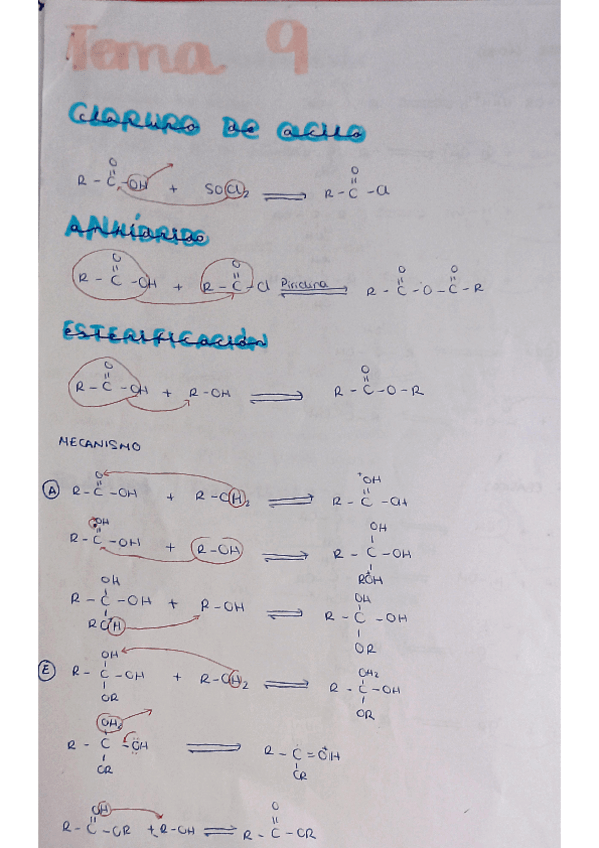 Tema 9
CLORURO DE ACILO
O
R - C - OH + SOCl2 ⇌ R - C - Cl
ANHÍDRIDO
O
R - C - OH + R - C - Cl Piridina R - C - O - C - R
ESTERIFICACIÓN
O
R - C - OH + R - OH ⇌ R - C - O - R
MECANISMO
A R - C - OH + R - OH2 ⇌ R - C - OH
OH
R - C - OH + R - OH ⇌ R - C - OH
ROH
OH
R - C - OH + R - OH ⇌ R - C - OH
OR
E R - C - OH + R - OH2 ⇌ R - C - OH
OR
OH2
R - C - OH ⇌ R - C = OH
OR
OH
R - C - OR + R - OH ⇌ R - C - OR